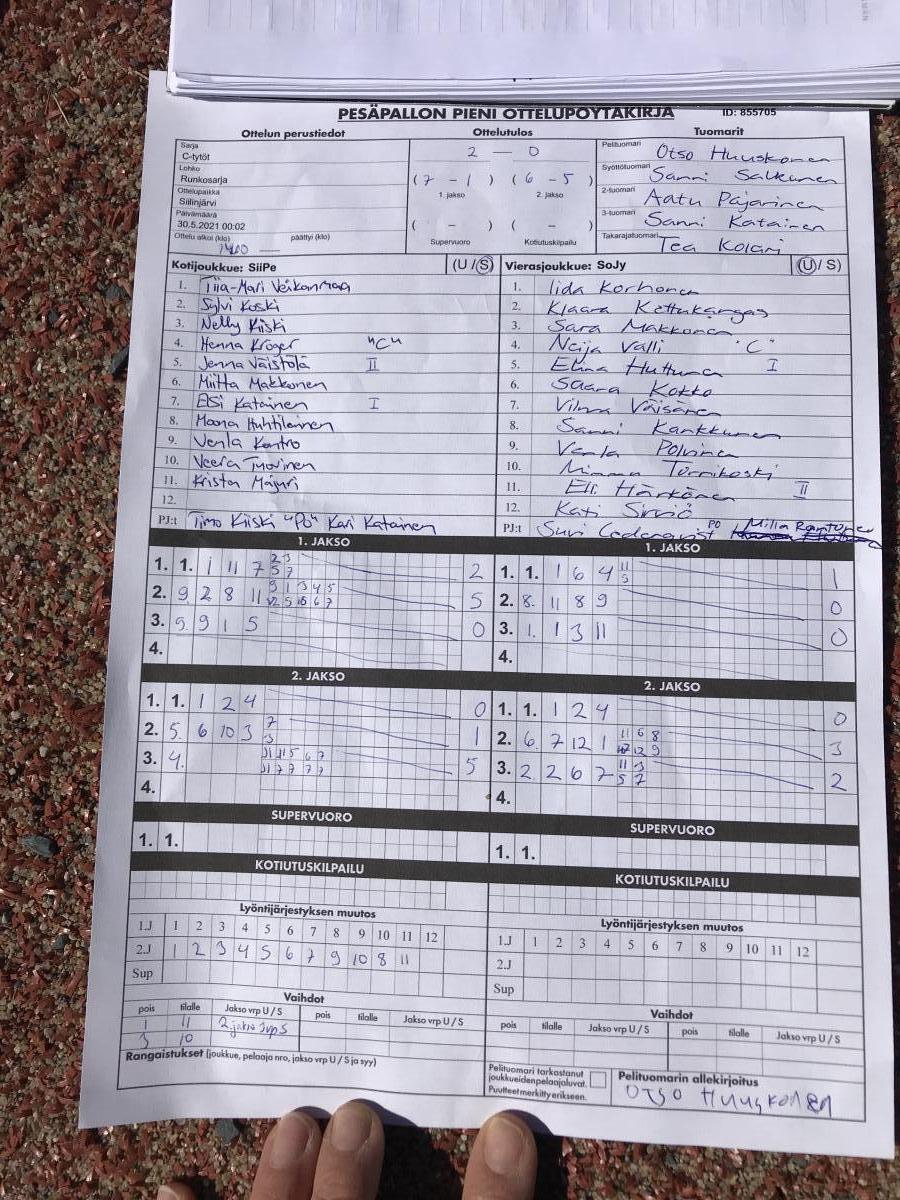 PESÄPALLON PIENI OTTELUPÖYTÄKIRJA ID: 855705
Ottelun perustiedot Ottelutulos Tuomarit
Sarja
C-tytöt
Lohko
Runkosarja
Ottelupaikka
Siilinjärvi
Päivämäärä
30.5.2021 00:02
Ottelu alkoi (klo) päättyi (klo)
2 — 0
(7 - 1) (6 - 5)
1. jakso 2. jakso
( - ) ( - )
Supervuoro Kotiutuskilpailu
Pelituomari Otso Huuskonen
Syöttötuomari Sanni Salkunen
2-tuomari Aatu Pajarinen
3-tuomari Sanni Katainen
Takarajatuomari Tea Kolari
Kotijoukkue: SiiPe (U / S)
1. Tiia-Mari Veikanmaa
2. Sylvi Koski
3. Nelly Kiiski
4. Henna Kröger "C"
5. Jenna Väistölä II
6. Miitta Makkonen
7. Elsi Katainen I
8. Moona Huhtilainen
9. Venla Kontro
10. Veera Tuovinen
11. Krista Majuri
12.
PJ:t Timo Kiiski "PO" Kari Katainen
Vierasjoukkue: SoJy (U / S)
1. Iida Korhonen
2. Klaara Kettukangas
3. Sara Makkonen
4. Neija Valli "C"
5. Elina Huttunen I
6. Saara Kokko
7. Vilma Väisänen
8. Sanni Kankkunen
9. Venla Polvinen
10. Minna Tornikoski
11. Eli Härkönen II
12. Kati Sirviö
PJ:t Suvi Cederqvist PO Milla Rantonen
1. JAKSO
1. 1. 1 11 7 2 3 2
5 7
2. 9 2 8 11 9 1 3 4 5 5
12 5 10 6 7
3. 5 9 1 5 0
4.
1. JAKSO
1. 1. 1 6 4 11 1
3
2. 8. 11 8 9 0
3. 1. 1 3 11 0
4.
2. JAKSO
1. 1. 1 2 4 0
2. 5. 6 10 3 7 1
3
3. 4. 11 11 5 6 7 5
11 7 7 7 7
4.
2. JAKSO
1. 1. 1 2 4 0
2. 6 7 12 1 11 6 8 3
12 12 9
3. 2 2 6 7 11 3 2
5 7
4.
SUPERVUORO
1. 1.
SUPERVUORO
1. 1.
KOTIUTUSKILPAILU
KOTIUTUSKILPAILU
Lyöntijärjestyksen muutos
1.J 1 2 3 4 5 6 7 8 9 10 11 12
2.J 1 2 3 4 5 6 7 9 10 8 11
Sup
Lyöntijärjestyksen muutos
1.J 1 2 3 4 5 6 7 8 9 10 11 12
2.J
Sup
Vaihdot
pois tilalle Jakso vrp U / S pois tilalle Jakso vrp U / S
1 11 2.jakso 3vpS
3 10
Vaihdot
pois tilalle Jakso vrp U / S pois tilalle Jakso vrp U / S
Rangaistukset (joukkue, pelaaja nro, jakso vrp U / S ja syy)
Pelituomari tarkastanut
joukkueiden pelaajaluvat.
Puutteet merkitty erikseen.
Pelituomarin allekirjoitus
Otso Huuskonen